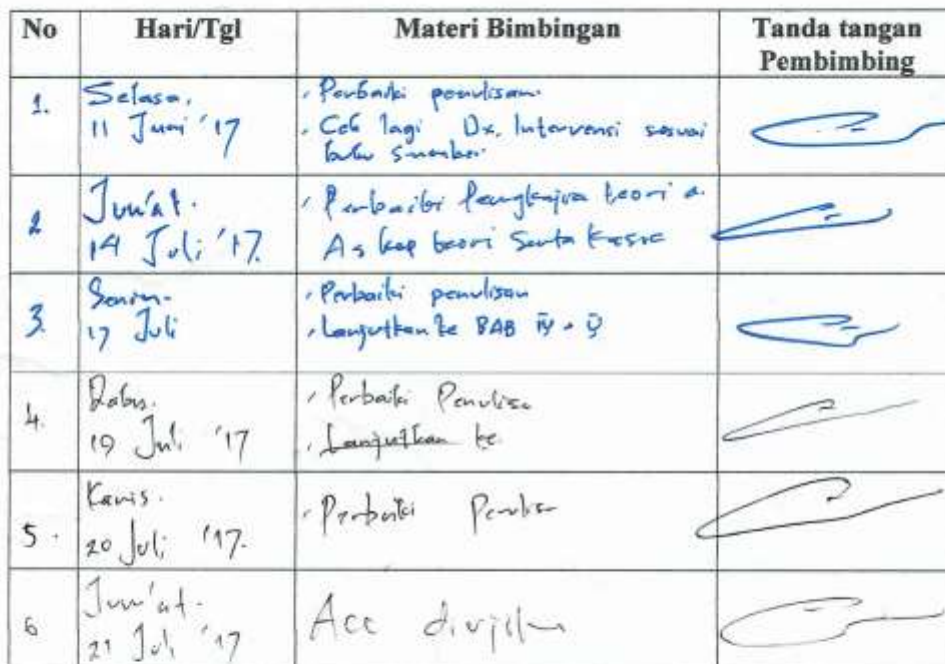 No Hari/Tgl Materi Bimbingan Tanda tangan Pembimbing
1. Selasa, 11 Juni '17
Perbaiki penulisan.
Cek lagi Dx. Intervensi sesuai buku sumber.
2 Jum'at. 14 Juli '17.
Perbaiki Pengkajian teori
Askep teori serta kasus
3. Senin. 17 Juli
Perbaiki penulisan
Lanjutkan ke BAB IV + V
4. Rabu. 19 Juli '17
Perbaiki Penulisan
Lanjutkan ke
5. Kamis. 20 Juli '17.
Perbaiki Penulisan
6 Jum'at. 21 Juli '17
Acc diujikan